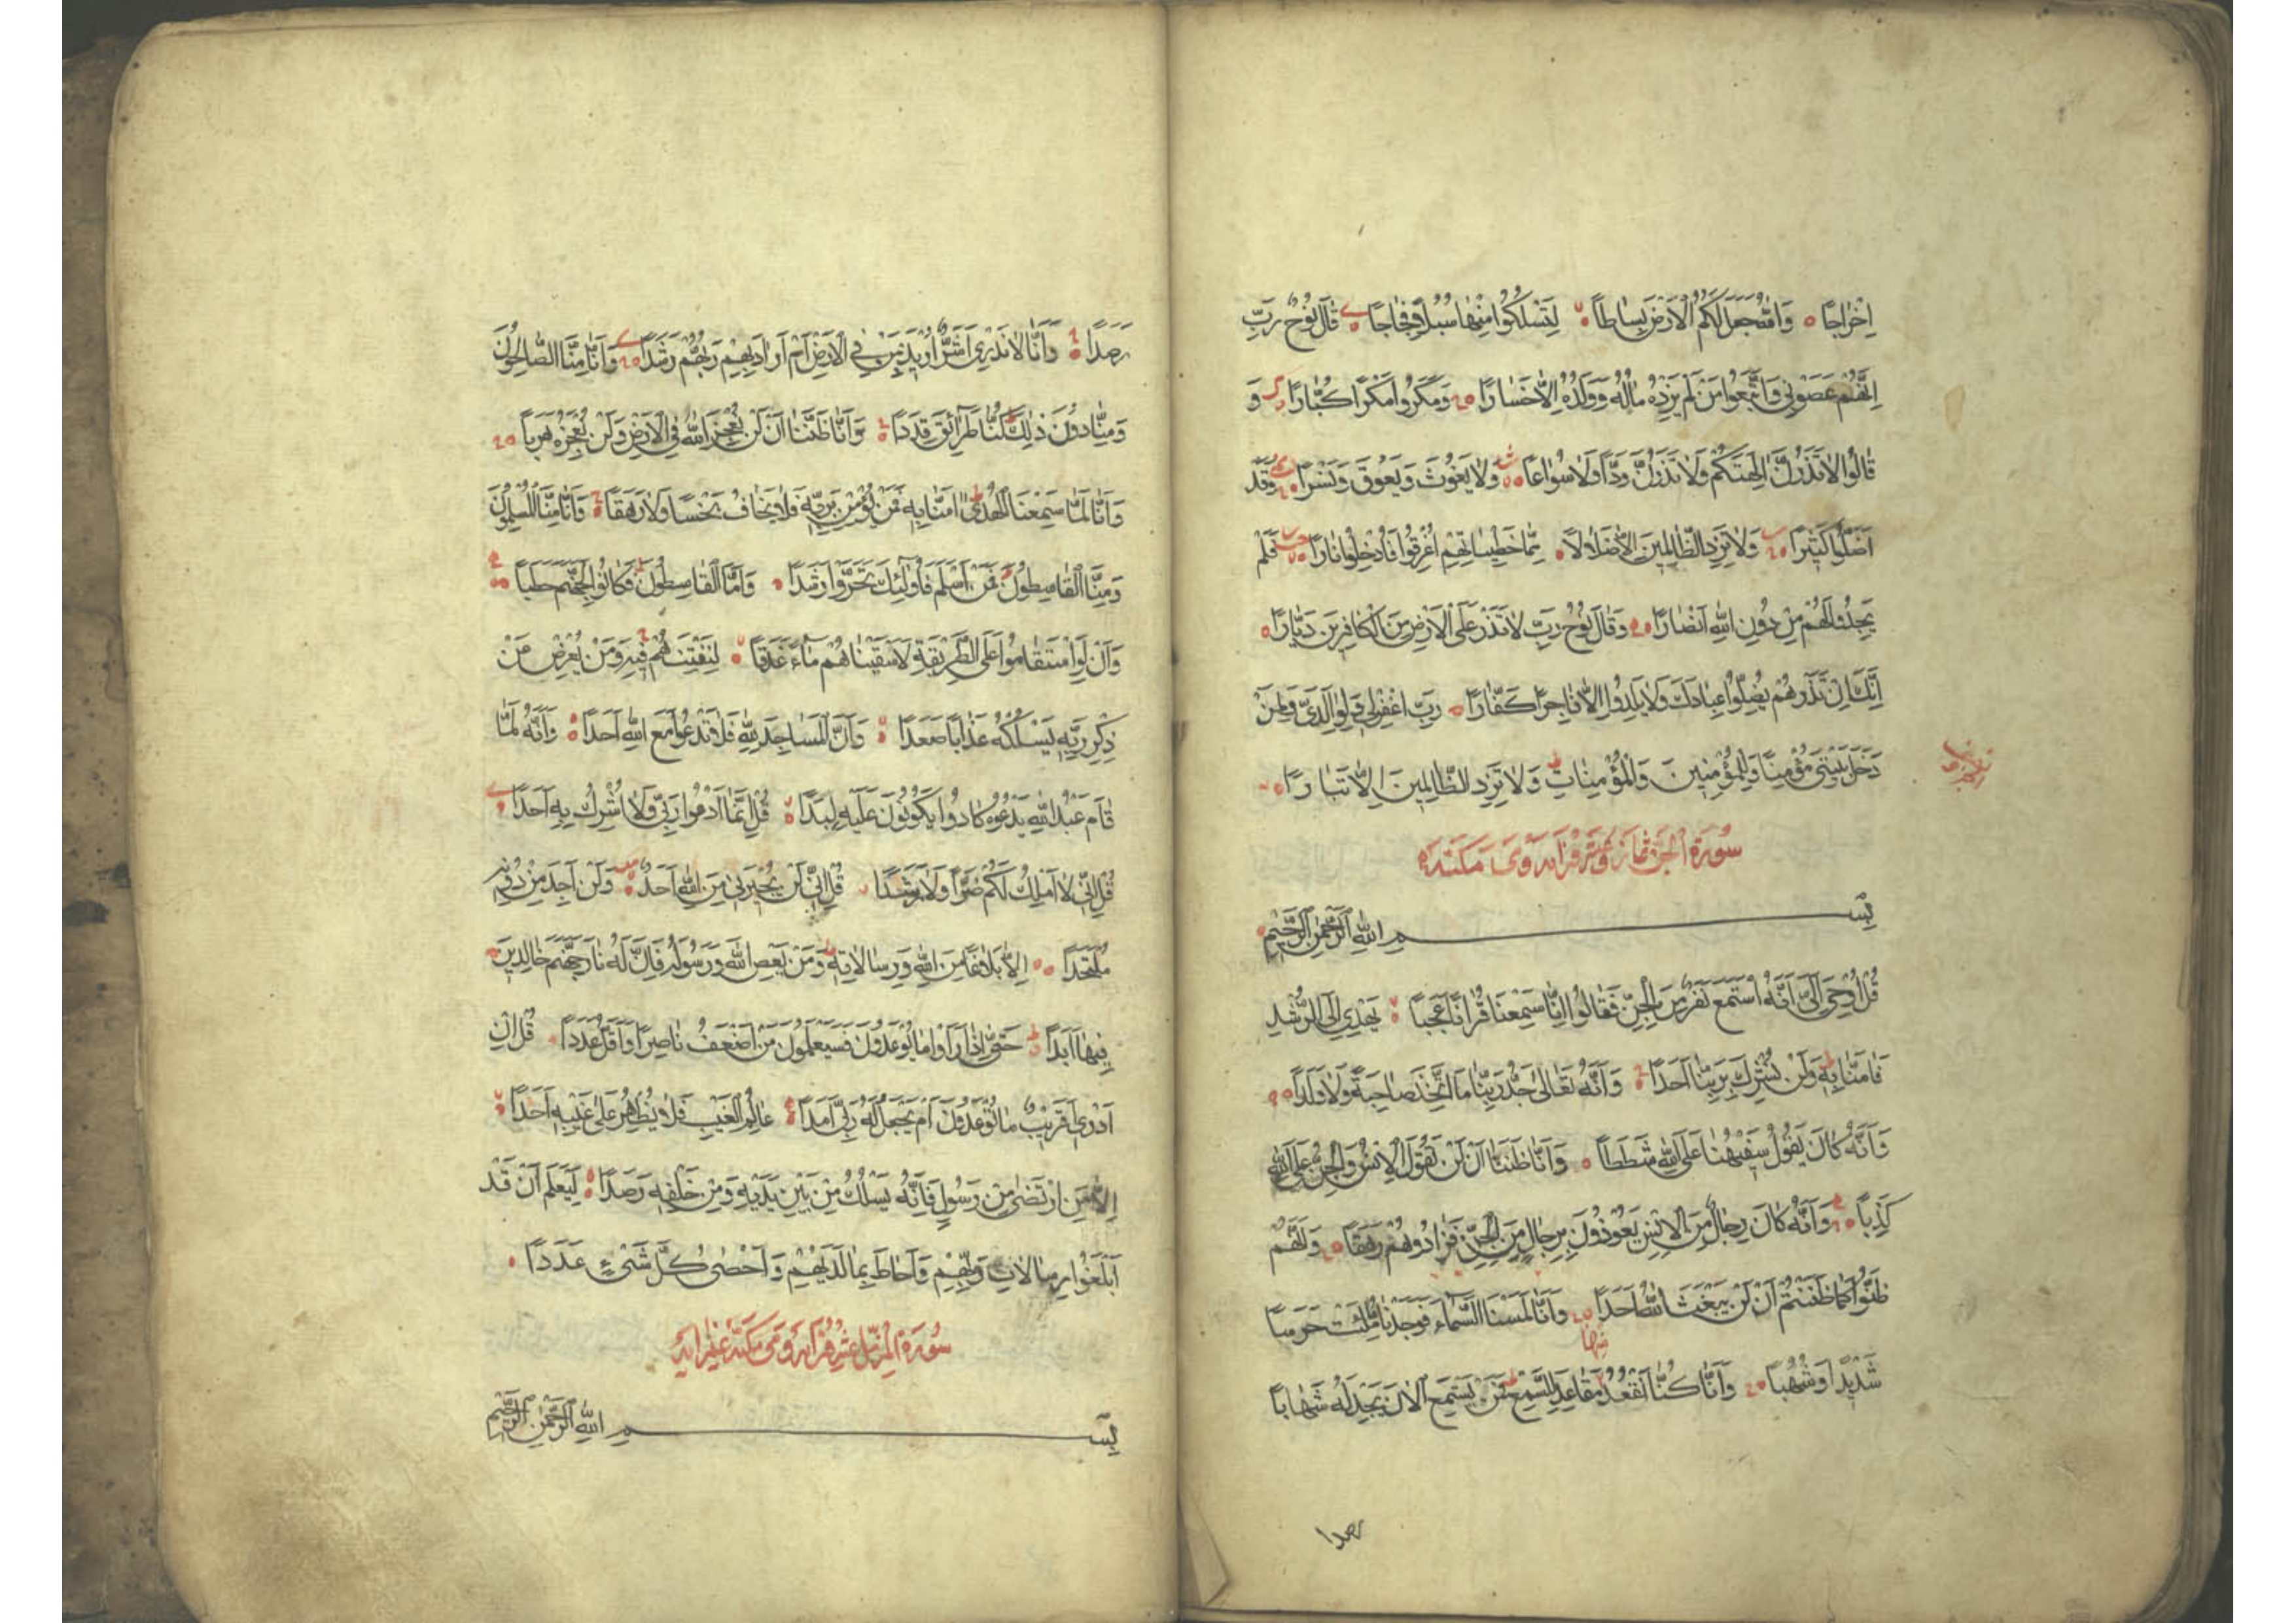 اِخْرَاجًا وَاللّٰهُ جَعَلَ لَكُمُ الْاَرْضَ بِسَاطًا لِتَسْلُكُوا مِنْهَا سُبُلًا فِجَاجًا قَالَ نُوحٌ رَبِّ
اِنَّهُمْ عَصَوْنِي وَاتَّبَعُوا مَنْ لَمْ يَزِدْهُ مَالُهُ وَوَلَدُهُ اِلَّا خَسَارًا وَمَكَرُوا مَكْرًا كُبَّارًا وَ
قَالُوا لَا تَذَرُنَّ اٰلِهَتَكُمْ وَلَا تَذَرُنَّ وَدًّا وَلَا سُوَاعًا وَلَا يَغُوثَ وَيَعُوقَ وَنَسْرًا وَقَدْ
اَضَلُّوا كَثِيرًا وَلَا تَزِدِ الظَّالِمِينَ اِلَّا ضَلَالًا مِمَّا خَطِيئَاتِهِمْ اُغْرِقُوا فَاُدْخِلُوا نَارًا فَلَمْ
يَجِدُوا لَهُمْ مِنْ دُونِ اللّٰهِ اَنْصَارًا وَقَالَ نُوحٌ رَبِّ لَا تَذَرْ عَلَى الْاَرْضِ مِنَ الْكَافِرِينَ دَيَّارًا
اِنَّكَ اِنْ تَذَرْهُمْ يُضِلُّوا عِبَادَكَ وَلَا يَلِدُوا اِلَّا فَاجِرًا كَفَّارًا رَبِّ اغْفِرْ لِي وَلِوَالِدَيَّ وَلِمَنْ
دَخَلَ بَيْتِيَ مُؤْمِنًا وَلِلْمُؤْمِنِينَ وَالْمُؤْمِنَاتِ وَلَا تَزِدِ الظَّالِمِينَ اِلَّا تَبَارًا
سُورَةُ الْجِنِّ
بِسْمِ اللّٰهِ الرَّحْمٰنِ الرَّحِيمِ
قُلْ اُوحِيَ اِلَيَّ اَنَّهُ اسْتَمَعَ نَفَرٌ مِنَ الْجِنِّ فَقَالُوا اِنَّا سَمِعْنَا قُرْاٰنًا عَجَبًا يَهْدِي اِلَى الرُّشْدِ
فَاٰمَنَّا بِهِ وَلَنْ نُشْرِكَ بِرَبِّنَا اَحَدًا وَاَنَّهُ تَعَالٰى جَدُّ رَبِّنَا مَا اتَّخَذَ صَاحِبَةً وَلَا وَلَدًا
وَاَنَّهُ كَانَ يَقُولُ سَفِيهُنَا عَلَى اللّٰهِ شَطَطًا وَاَنَّا ظَنَنَّا اَنْ لَنْ تَقُولَ الْاِنْسُ وَالْجِنُّ عَلَى اللّٰهِ
كَذِبًا وَاَنَّهُ كَانَ رِجَالٌ مِنَ الْاِنْسِ يَعُوذُونَ بِرِجَالٍ مِنَ الْجِنِّ فَزَادُوهُمْ رَهَقًا وَاَنَّهُمْ
ظَنُّوا كَمَا ظَنَنْتُمْ اَنْ لَنْ يَبْعَثَ اللّٰهُ اَحَدًا وَاَنَّا لَمَسْنَا السَّمَاءَ فَوَجَدْنَاهَا مُلِئَتْ حَرَسًا
شَدِيدًا وَشُهُبًا وَاَنَّا كُنَّا نَقْعُدُ مِنْهَا مَقَاعِدَ لِلسَّمْعِ فَمَنْ يَسْتَمِعِ الْاٰنَ يَجِدْ لَهُ شِهَابًا
رصدا
رَصَدًا وَاَنَّا لَا نَدْرِي اَشَرٌّ اُرِيدَ بِمَنْ فِي الْاَرْضِ اَمْ اَرَادَ بِهِمْ رَبُّهُمْ رَشَدًا وَاَنَّا مِنَّا الصَّالِحُونَ
وَمِنَّا دُونَ ذٰلِكَ كُنَّا طَرَائِقَ قِدَدًا وَاَنَّا ظَنَنَّا اَنْ لَنْ نُعْجِزَ اللّٰهَ فِي الْاَرْضِ وَلَنْ نُعْجِزَهُ هَرَبًا
وَاَنَّا لَمَّا سَمِعْنَا الْهُدٰى اٰمَنَّا بِهِ فَمَنْ يُؤْمِنْ بِرَبِّهِ فَلَا يَخَافُ بَخْسًا وَلَا رَهَقًا وَاَنَّا مِنَّا الْمُسْلِمُونَ
وَمِنَّا الْقَاسِطُونَ فَمَنْ اَسْلَمَ فَاُولٰئِكَ تَحَرَّوْا رَشَدًا وَاَمَّا الْقَاسِطُونَ فَكَانُوا لِجَهَنَّمَ حَطَبًا
وَاَنْ لَوِ اسْتَقَامُوا عَلَى الطَّرِيقَةِ لَاَسْقَيْنَاهُمْ مَاءً غَدَقًا لِنَفْتِنَهُمْ فِيهِ وَمَنْ يُعْرِضْ عَنْ
ذِكْرِ رَبِّهِ يَسْلُكْهُ عَذَابًا صَعَدًا وَاَنَّ الْمَسَاجِدَ لِلّٰهِ فَلَا تَدْعُوا مَعَ اللّٰهِ اَحَدًا وَاَنَّهُ لَمَّا
قَامَ عَبْدُ اللّٰهِ يَدْعُوهُ كَادُوا يَكُونُونَ عَلَيْهِ لِبَدًا قُلْ اِنَّمَا اَدْعُوا رَبِّي وَلَا اُشْرِكُ بِهِ اَحَدًا
قُلْ اِنِّي لَا اَمْلِكُ لَكُمْ ضَرًّا وَلَا رَشَدًا قُلْ اِنِّي لَنْ يُجِيرَنِي مِنَ اللّٰهِ اَحَدٌ وَلَنْ اَجِدَ مِنْ دُونِهِ
مُلْتَحَدًا اِلَّا بَلَاغًا مِنَ اللّٰهِ وَرِسَالَاتِهِ وَمَنْ يَعْصِ اللّٰهَ وَرَسُولَهُ فَاِنَّ لَهُ نَارَ جَهَنَّمَ خَالِدِينَ
فِيهَا اَبَدًا حَتّٰى اِذَا رَاَوْا مَا يُوعَدُونَ فَسَيَعْلَمُونَ مَنْ اَضْعَفُ نَاصِرًا وَاَقَلُّ عَدَدًا قُلْ اِنْ
اَدْرِي اَقَرِيبٌ مَا تُوعَدُونَ اَمْ يَجْعَلُ لَهُ رَبِّي اَمَدًا عَالِمُ الْغَيْبِ فَلَا يُظْهِرُ عَلٰى غَيْبِهِ اَحَدًا
اِلَّا مَنِ ارْتَضٰى مِنْ رَسُولٍ فَاِنَّهُ يَسْلُكُ مِنْ بَيْنِ يَدَيْهِ وَمِنْ خَلْفِهِ رَصَدًا لِيَعْلَمَ اَنْ قَدْ
اَبْلَغُوا رِسَالَاتِ رَبِّهِمْ وَاَحَاطَ بِمَا لَدَيْهِمْ وَاَحْصٰى كُلَّ شَيْءٍ عَدَدًا
سُورَةُ الْمُزَّمِّلِ
بِسْمِ اللّٰهِ الرَّحْمٰنِ الرَّحِيمِ